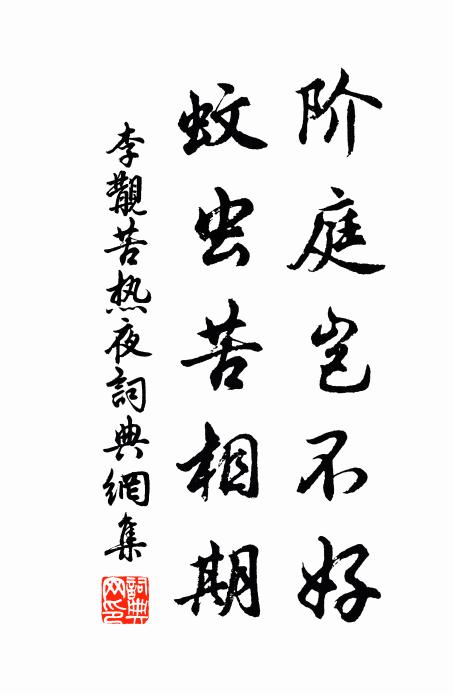 阶庭岂不好
蚊虫苦相期
李觏苦热夜詞典網集
詞典網印